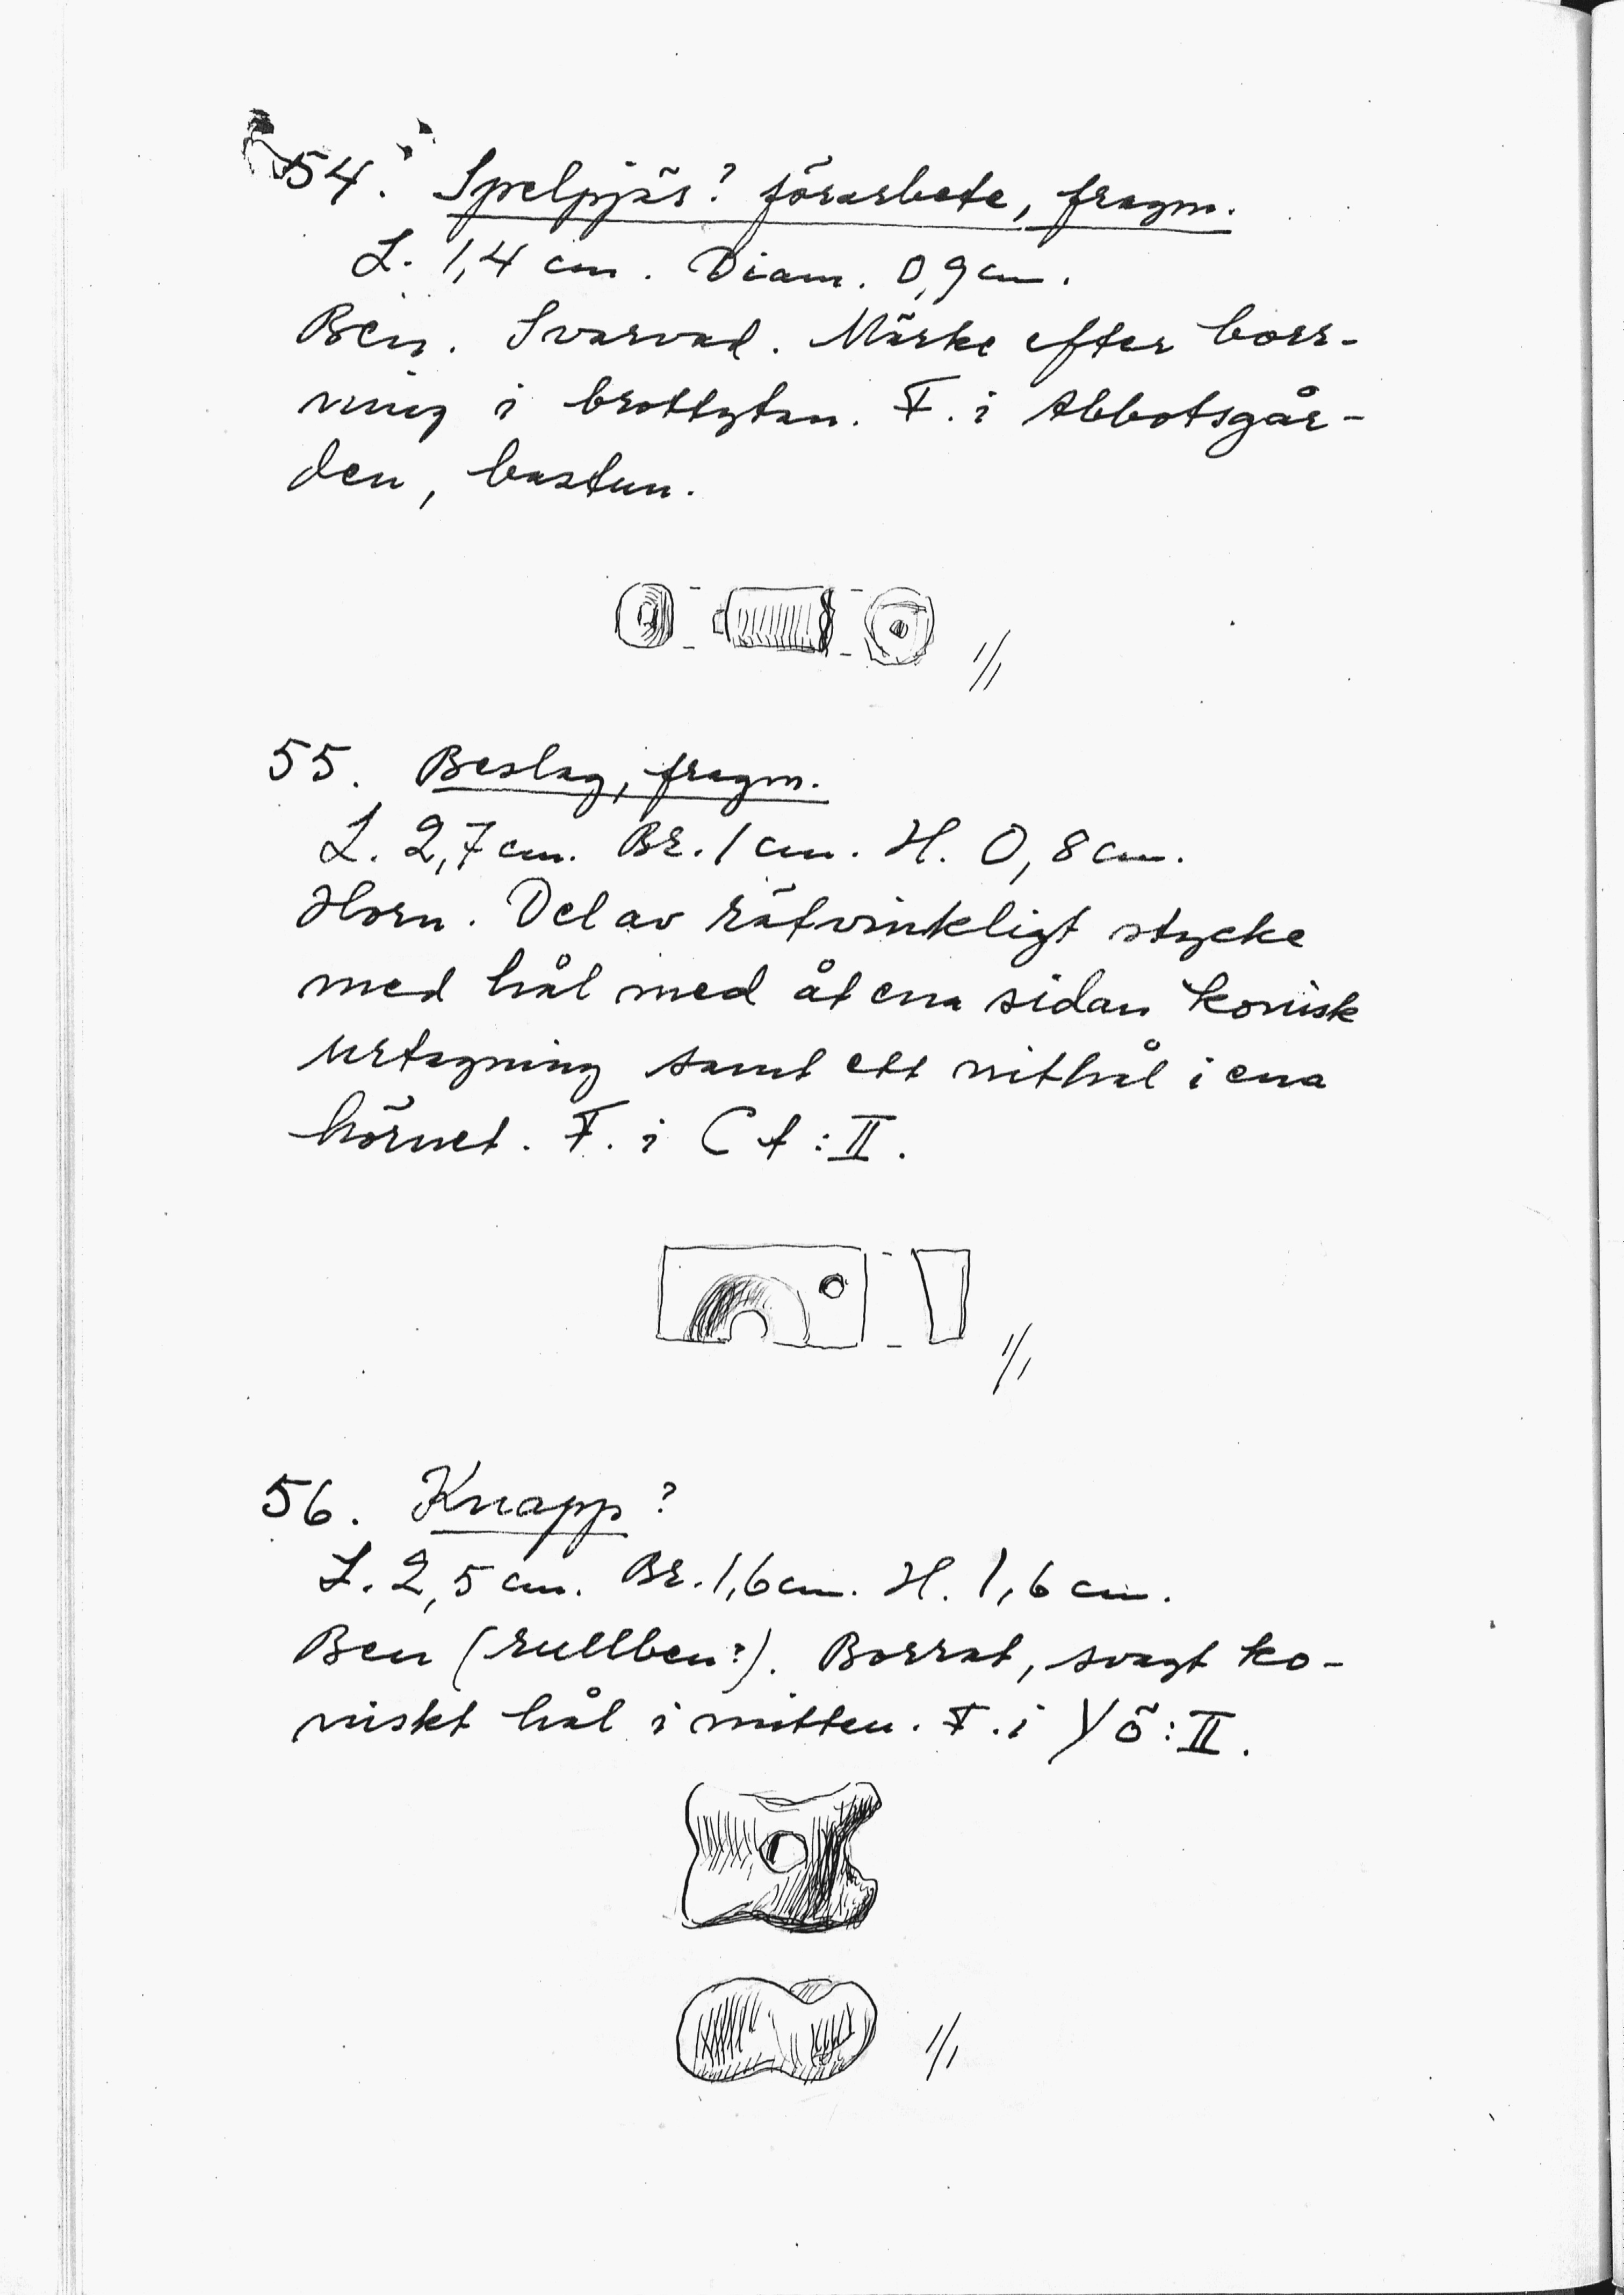 54. Spelpjäs? förarbete, fragm.
L. 1,4 cm. Diam. 0,9 cm.
Ben. Svarvad. Märke efter borr-
ning i brottytan. F. i Abbotsgår-
den, bastun.
1/1
55. Beslag, fragm.
L. 2,7 cm. Br. 1 cm. H. 0,8 cm.
Horn. Del av rätvinkligt stycke
med hål med åt ena sidan konisk
urtagning samt ett nithål i ena
hörnet. F. i Ct:II.
1/1
56. Knapp?
L. 2,5 cm. Br. 1,6 cm. H. 1,6 cm.
Ben (rullben?). Borrat, svagt ko-
niskt hål i mitten. F. i Yö:II.
1/1